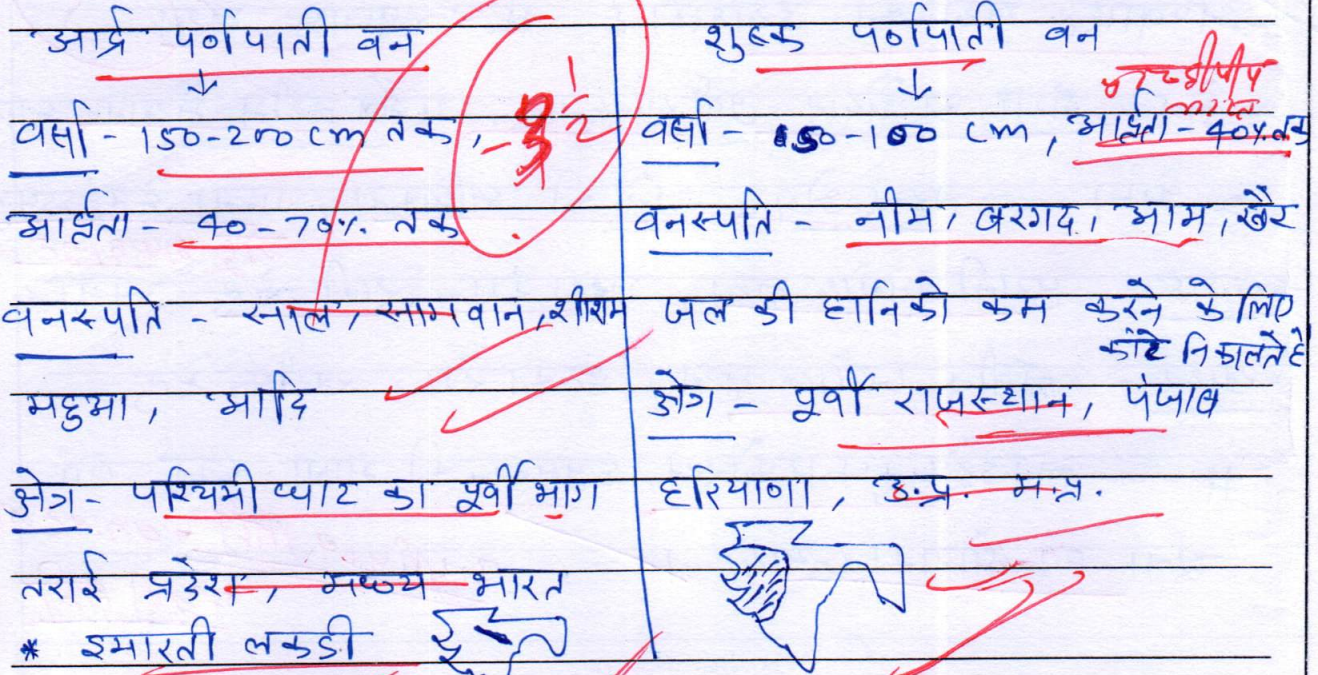 आर्द्र पर्णपाती वन
वर्सा - 150-200 cm तक,
आर्द्रता - 40-70% तक
वनस्पति - साल, सागवान, शीशम
महुआ, आदि
क्षेत्र - पश्चिमी घाट का पूर्वी भाग
तराई प्रदेश, मध्य भारत
* इमारती लकडी
शुष्क पर्णपाती वन
वर्सा - 50-100 cm, आर्द्रता - 40% तक
वनस्पति - नीम, बरगद, आम, खैर
जल की हानि को कम करने के लिए
कांटे निकालते है
क्षेत्र - पूर्वी राजस्थान, पंजाब
हरियाणा, उ.प्र. म.प्र.